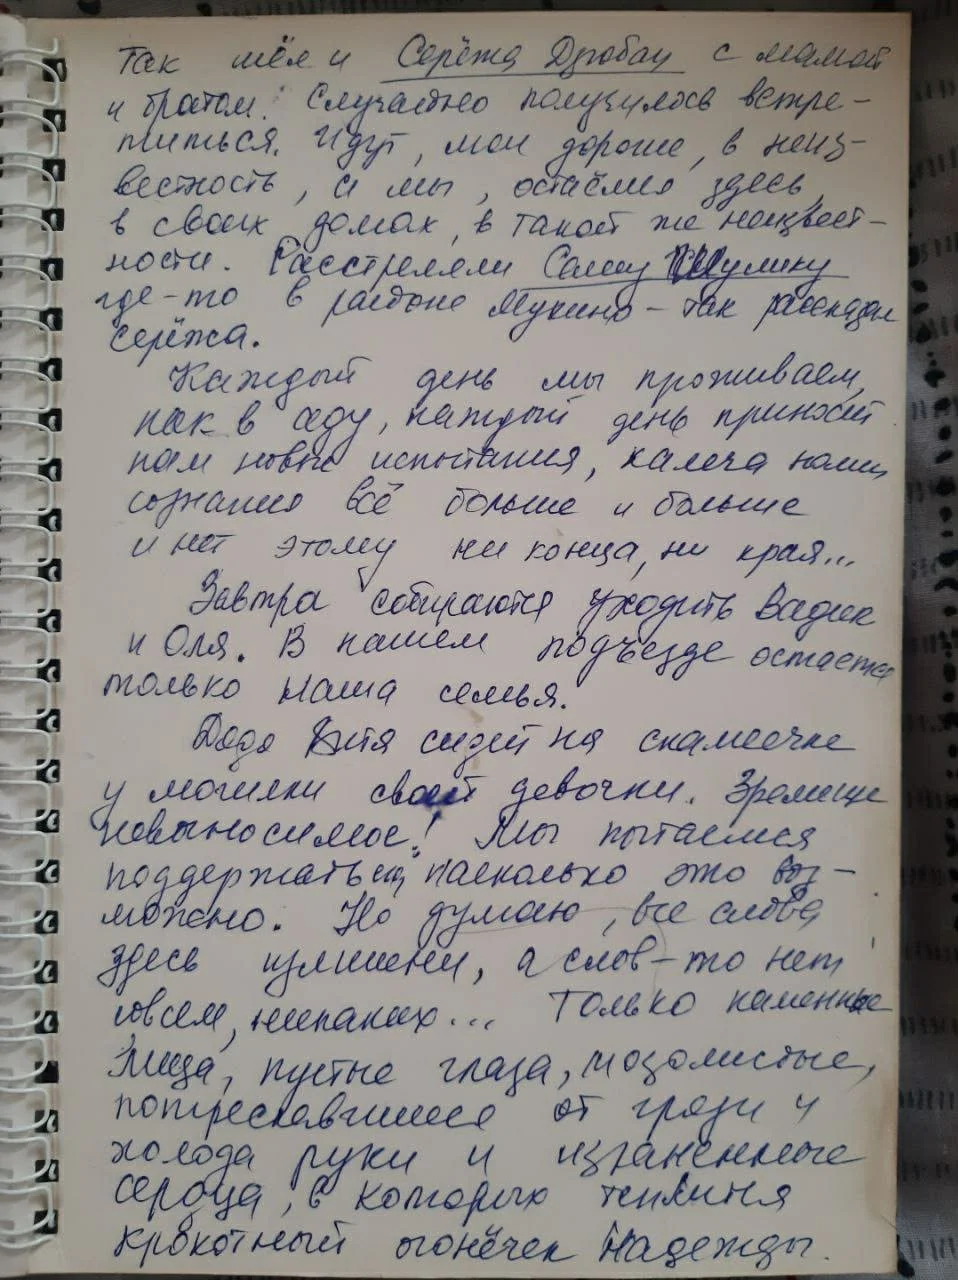 Так шёл и Серёжа Дзюбан с мамой
и братом. Случайно получилось встре-
титься. Идут, мои дорогие, в неиз-
вестность, а мы, остаёмся здесь,
в своих домах, в такой же неизвест-
ности. Расстреляли Сашу Шулику
где-то в районе Мукино - так рассказал
Серёжа.
Каждый день мы проживаем,
как в аду, каждый день приносит
нам новые испытания, калеча наши
сознания всё больше и больше
и нет этому ни конца, ни края...
Завтра собираются уходить Вадик
и Оля. В нашем подъезде остаётся
только наша семья.
Дядя Витя сидит на скамеечке
у могилки своей девочки. Зрелище
невыносимое! Мы пытаемся
поддержать их, насколько это воз-
можно. Но думаю, все слова
здесь излишни, а слов-то нет
совсем, никаких... Только каменные
лица, пустые глаза, мозолистые,
потрескавшиеся от грязи и
холода руки и израненные
сердца, в которых теплится
крохотный огонёчек надежды.